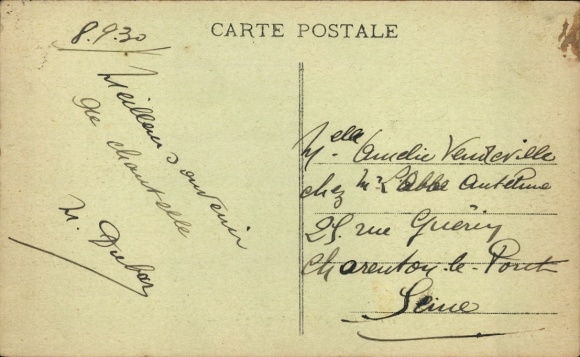 CARTE POSTALE
8.9.30
Meilleur Souvenir
de Chantelle
M. Dubor
Melle Amelie Vendeville
chez Mr L'Abbé Anselme
25, rue Guérin
Charenton-le-Pont
Seine